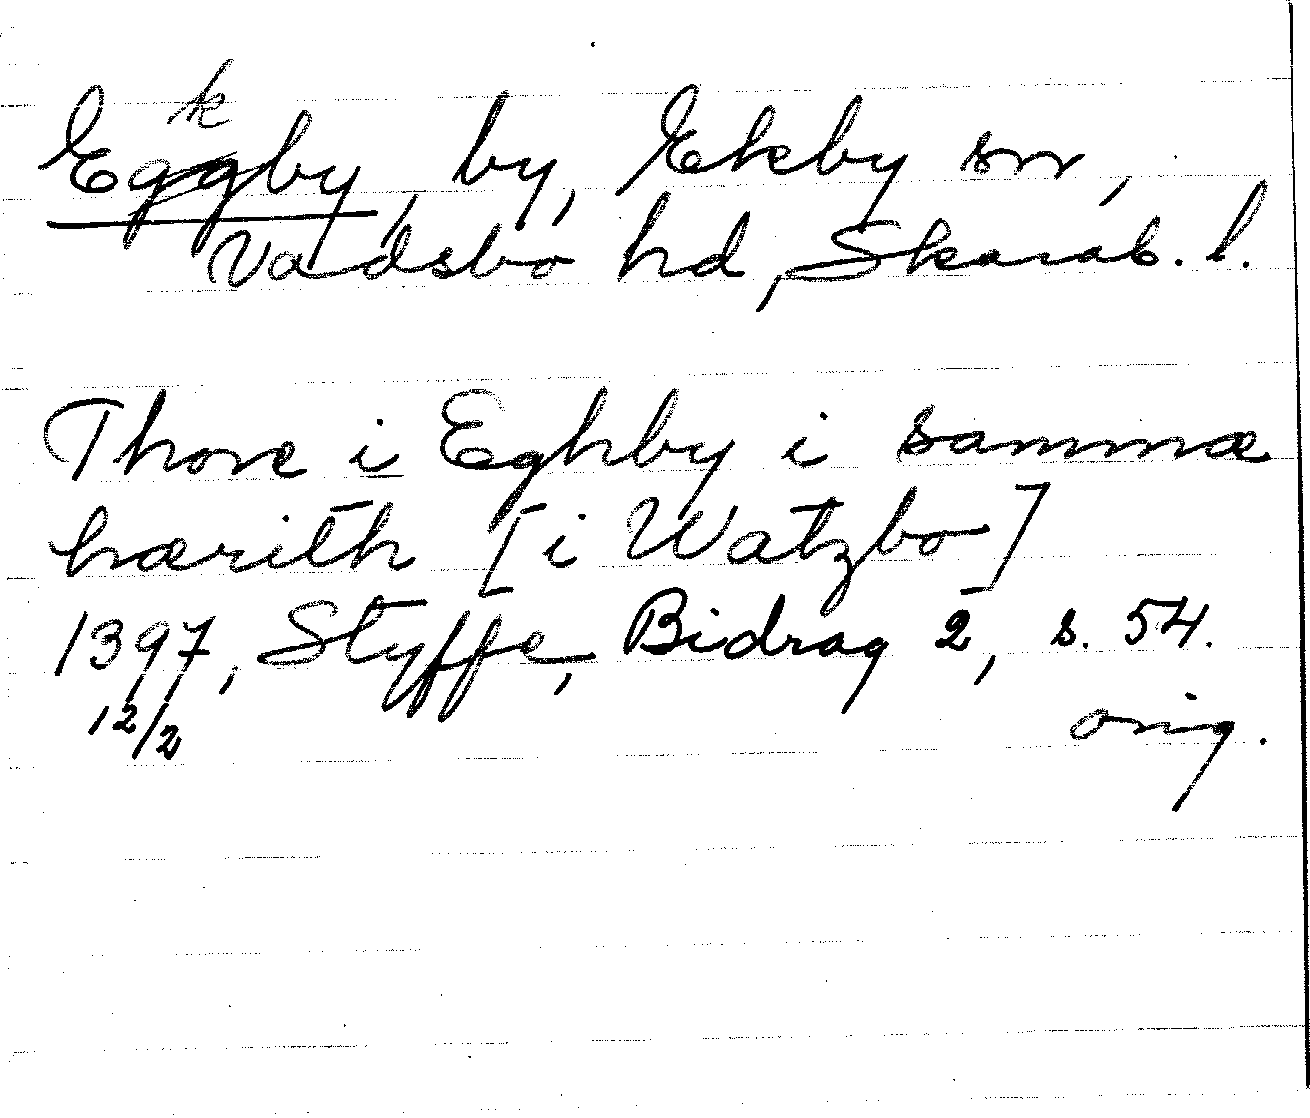 k
Eggby, by, Ekby sn,
Vadsbo hd, Skarab. l.
Thore i Eghby i sammæ
hærith [i Watzbo]
1397, Styffe, Bidrag 2, s. 54.
12/2 orig.